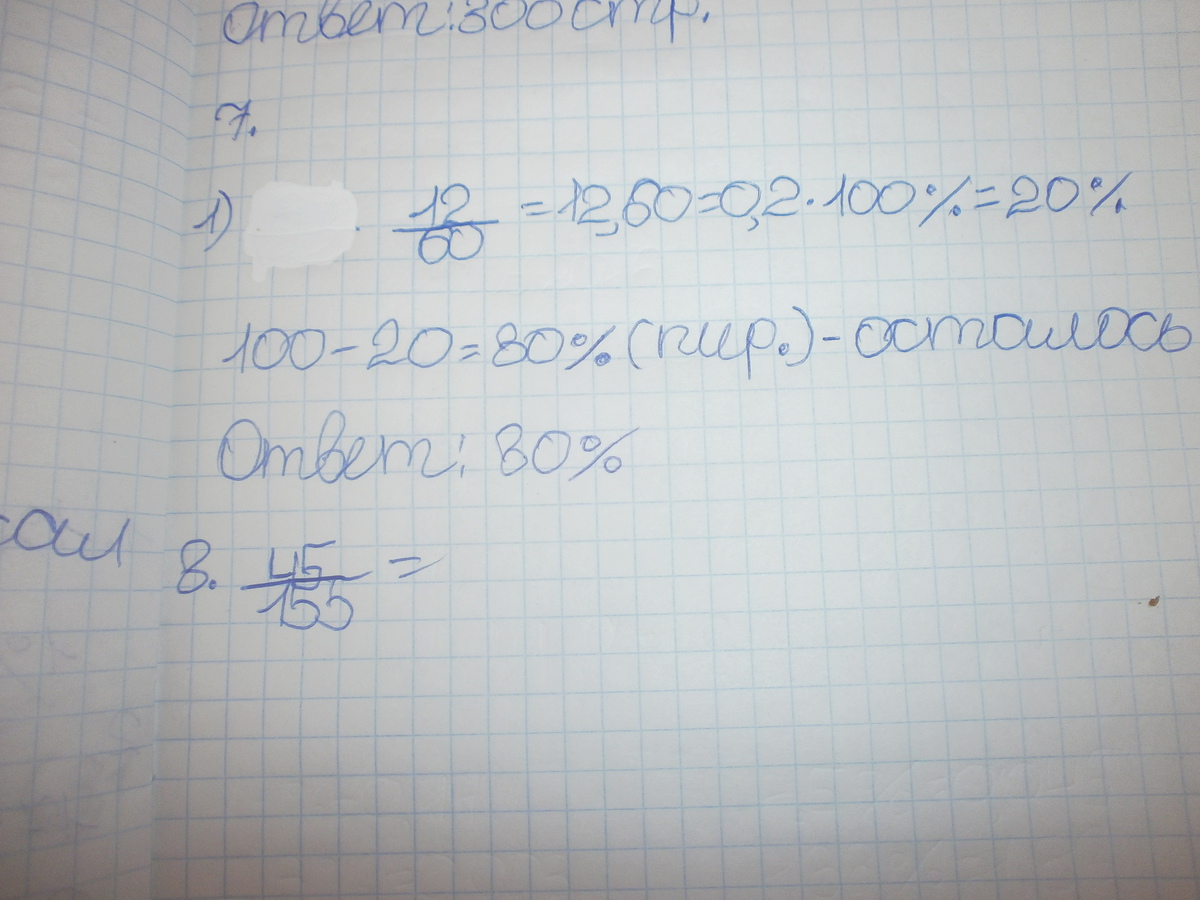 Ответ: 300 стр.
7.
1) 12/60 = 12,60 = 0,2 · 100% = 20%
100 - 20 = 80% (пир.) - осталось
Ответ: 80%
8. 45/155 =